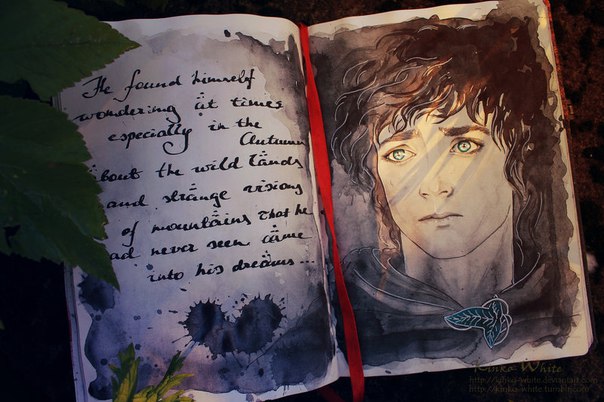 He found himself
wondering at times
especially in the
Autumn
about the wild lands
and strange visions
of mountains that he
had never seen came
into his dreams...
Kinko White
http://kinko-white.deviantart.com
http://kinko-white.tumblr.com